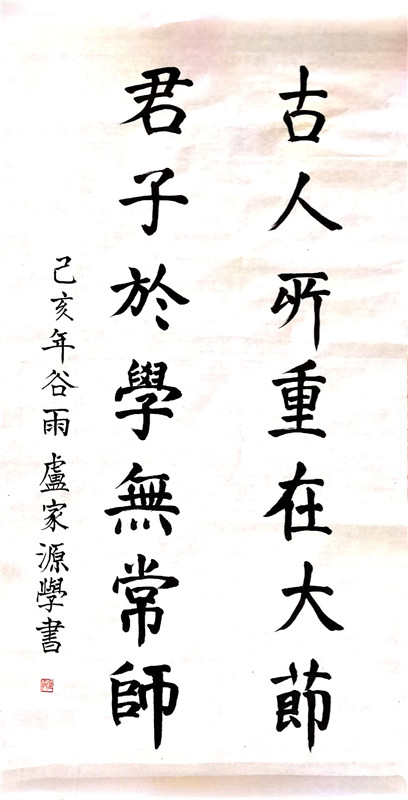 古人所重在大節
君子於學無常師
己亥年谷雨盧家源學書